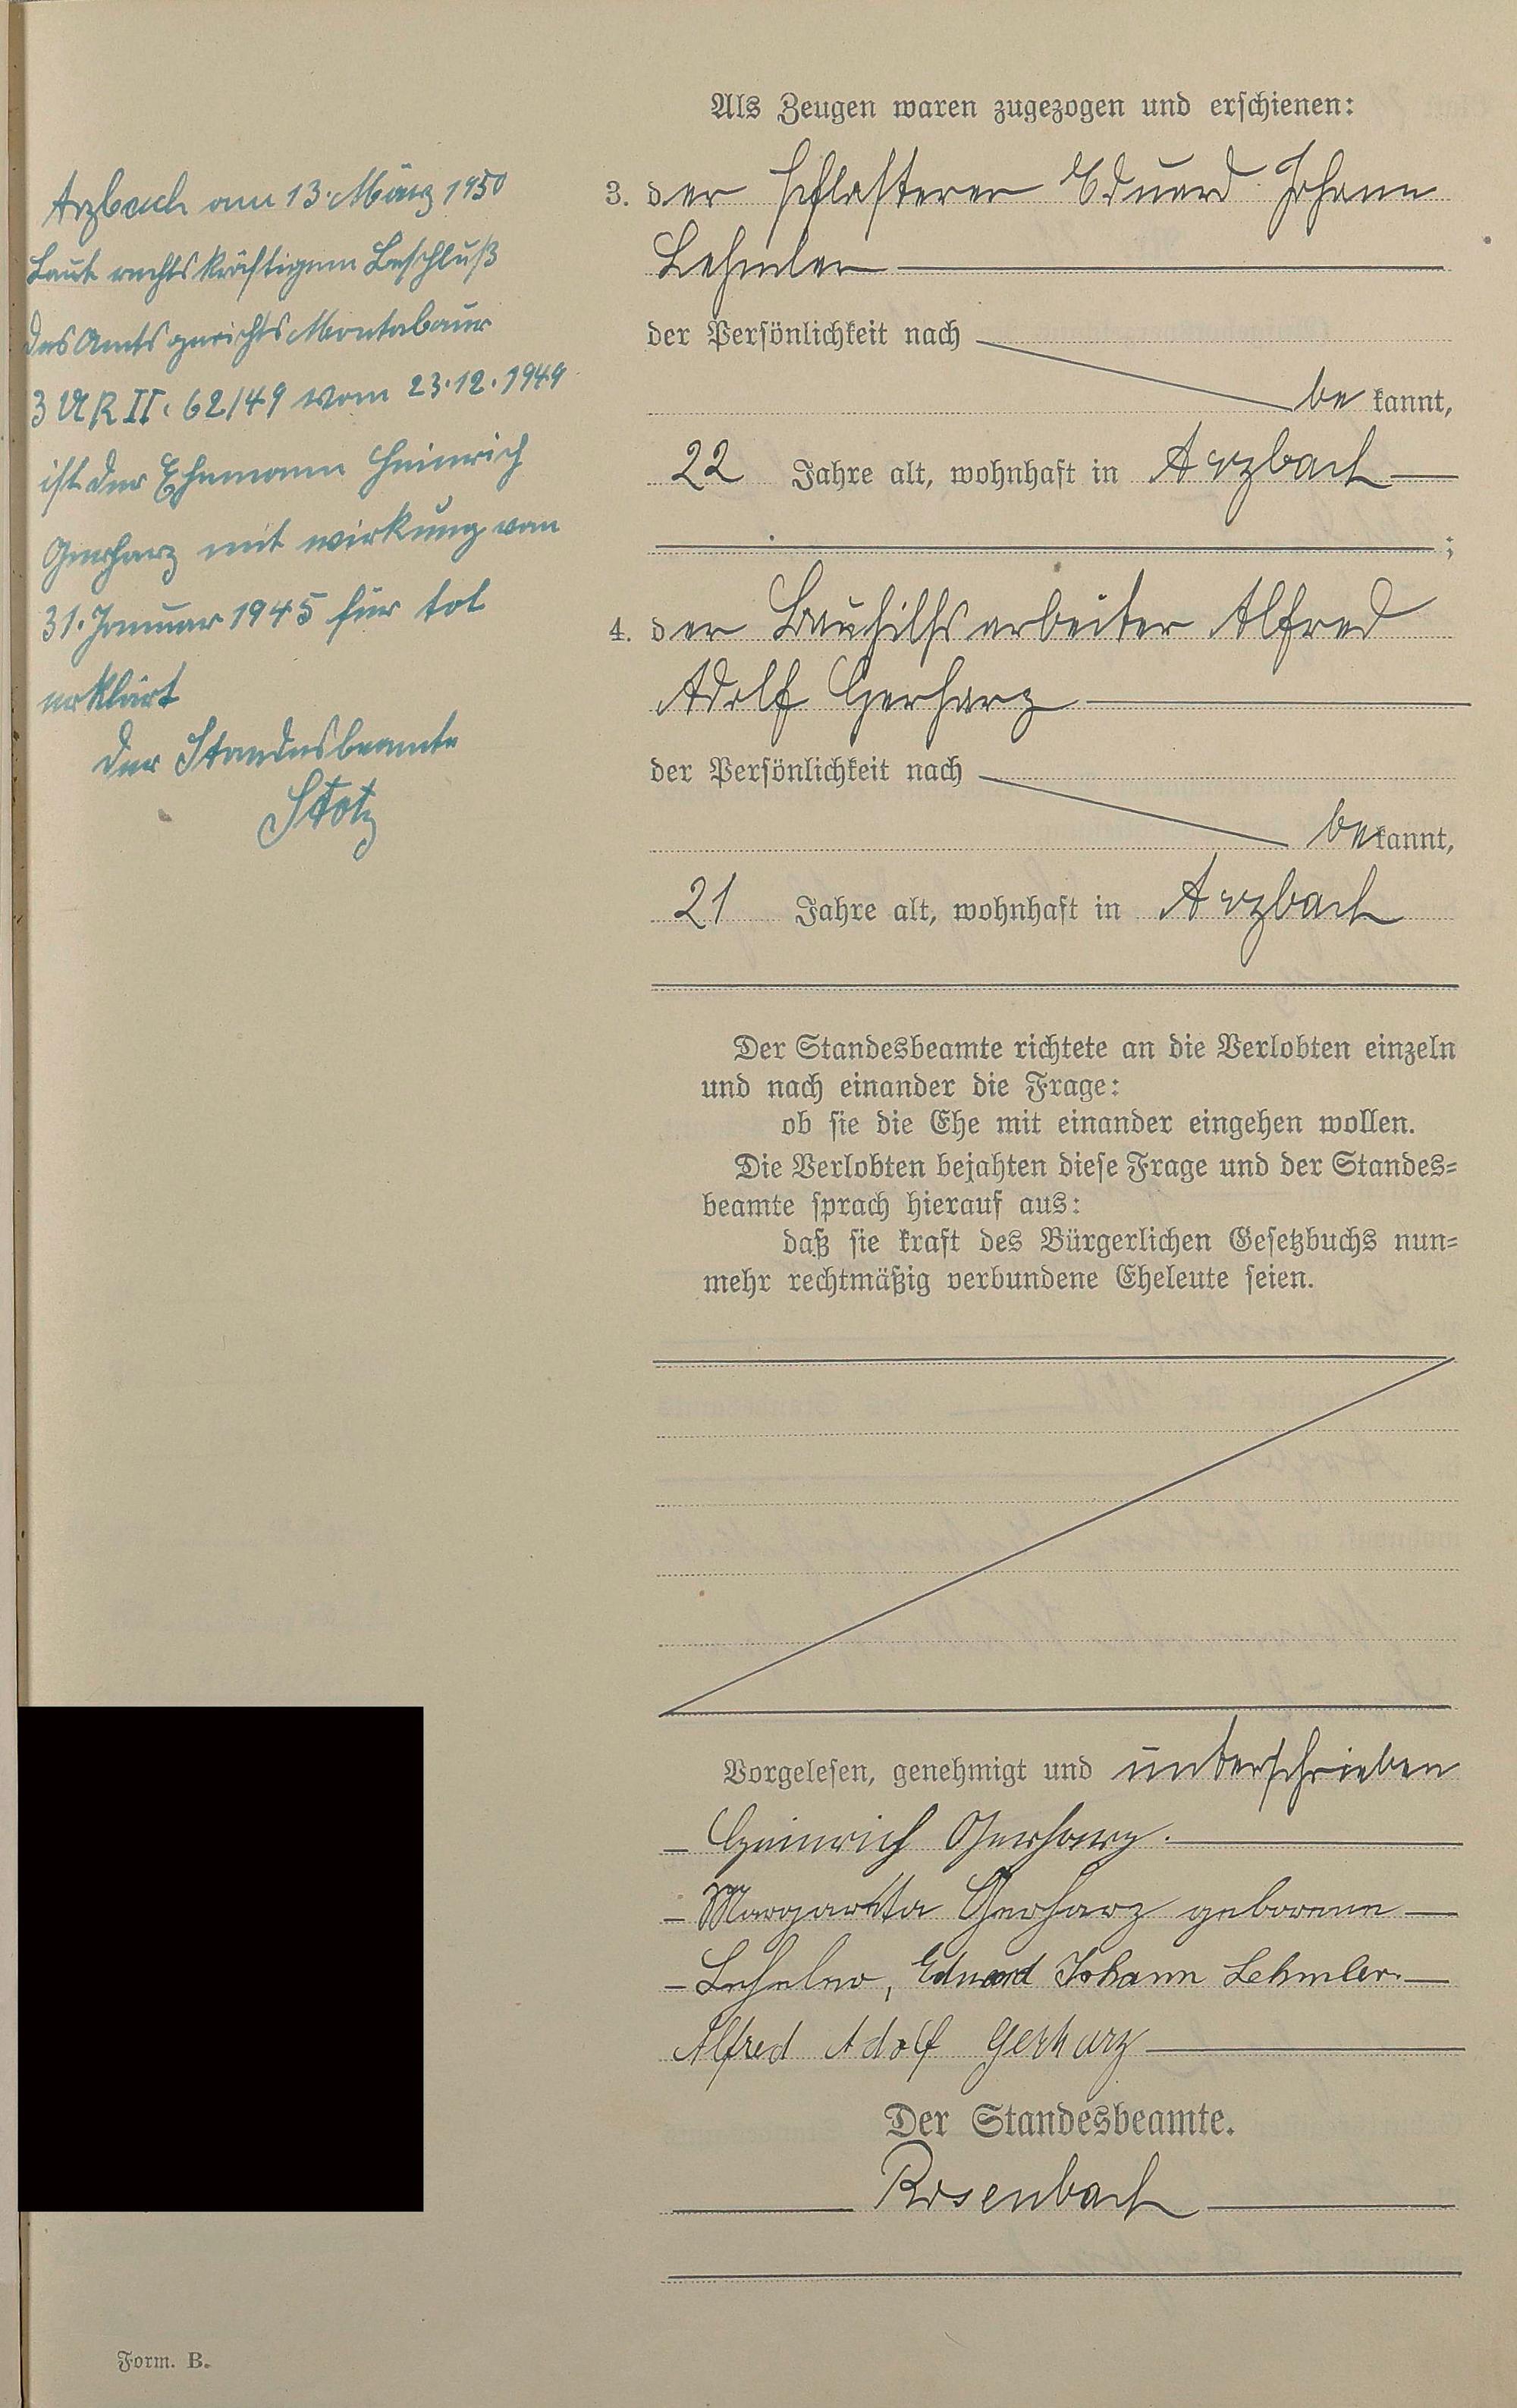 Arzbach am 13. März 1950
Laut rechtskräftigem Beschluß
des Amtsgerichts Montabaur
3 UR II. 62/49 vom 23.12.1949
ist der Ehemann Heinrich
Gerharz mit wirkung von
31. Januar 1945 für tot
erklärt
der Standesbeamte
Stotz
Als Zeugen waren zugezogen und erschienen:
3. der Pflasterer Eduard Johann
Lehmler
der Persönlichkeit nach
bekannt,
22 Jahre alt, wohnhaft in Arzbach
;
4. der Bauhilfsarbeiter Alfred
Adolf Gerharz
der Persönlichkeit nach
bekannt,
21 Jahre alt, wohnhaft in Arzbach
Der Standesbeamte richtete an die Verlobten einzeln
und nach einander die Frage:
ob sie die Ehe mit einander eingehen wollen.
Die Verlobten bejahten diese Frage und der Standes=
beamte sprach hierauf aus:
daß sie kraft des Bürgerlichen Gesetzbuchs nun=
mehr rechtmäßig verbundene Eheleute seien.
Vorgelesen, genehmigt und unterschrieben
Heinrich Gerharz.
Margareta Gerharz geborene
Eduard Johann Lehmler.
Alfred Adolf Gerharz
Der Standesbeamte.
Rosenbach
Form. B.